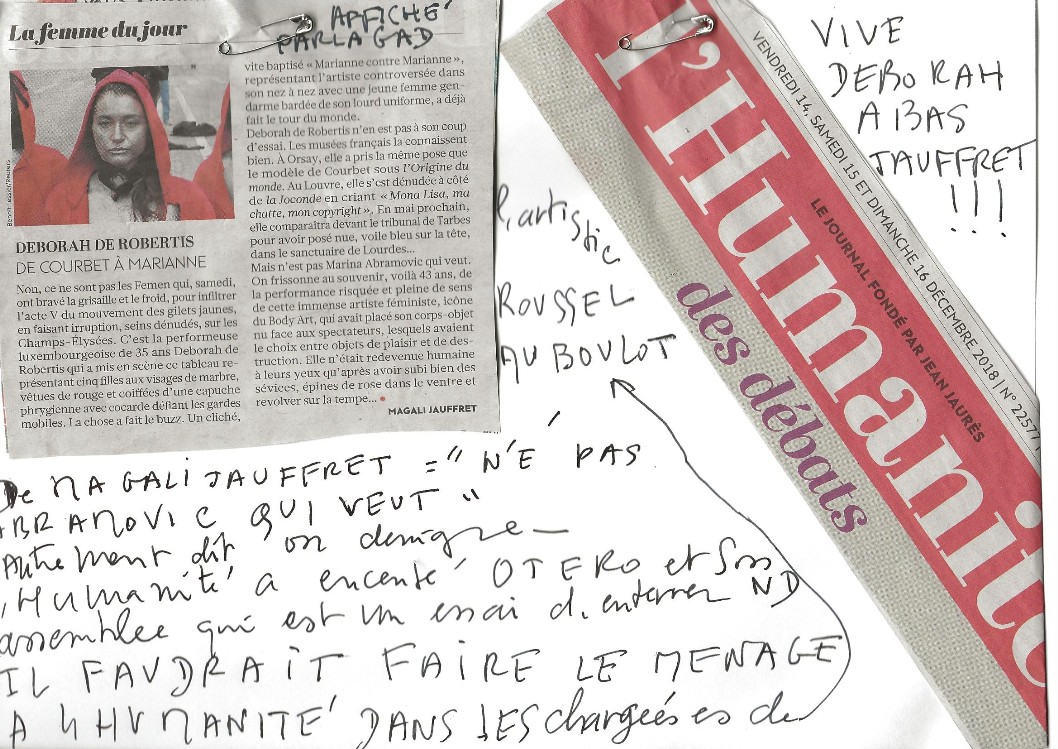 La femme du jour
AFFICHÉ
PAR LA GAD
DEBORAH DE ROBERTIS
DE COURBET À MARIANNE
Non, ce ne sont pas les Femen qui, samedi,
ont bravé la grisaille et le froid, pour infiltrer
l'acte V du mouvement des gilets jaunes,
en faisant irruption, seins dénudés, sur les
Champs-Élysées. C'est la performeuse
luxembourgeoise de 35 ans Deborah de
Robertis qui a mis en scène ce tableau re-
présentant cinq filles aux visages de marbre,
vêtues de rouge et coiffées d'une capuche
phrygienne avec cocarde défiant les gardes
mobiles. La chose a fait le buzz. Un cliché,
vite baptisé « Marianne contre Marianne »,
représentant l'artiste controversée dans
son nez à nez avec une jeune femme gen-
darme bardée de son lourd uniforme, a déjà
fait le tour du monde.
Deborah de Robertis n'en est pas à son coup
d'essai. Les musées français la connaissent
bien. À Orsay, elle a pris la même pose que
le modèle de Courbet sous l'Origine du
monde. Au Louvre, elle s'est dénudée à côté
de la Joconde en criant « Mona Lisa, ma
chatte, mon copyright ». En mai prochain,
elle comparaîtra devant le tribunal de Tarbes
pour avoir posé nue, voile bleu sur la tête,
dans le sanctuaire de Lourdes...
Mais n'est pas Marina Abramovic qui veut.
On frissonne au souvenir, voilà 43 ans, de
la performance risquée et pleine de sens
de cette immense artiste féministe, icône
du Body Art, qui avait placé son corps-objet
nu face aux spectateurs, lesquels avaient
le choix entre objets de plaisir et de des-
truction. Elle n'était redevenue humaine
à leurs yeux qu'après avoir subi bien des
sévices, épines de rose dans le ventre et
revolver sur la tempe...
MAGALI JAUFFRET
l'Humanité
des débats
VENDREDI 14, SAMEDI 15 ET DIMANCHE 16 DÉCEMBRE 2018 | N° 22577
LE JOURNAL FONDÉ PAR JEAN JAURÈS
VIVE
DEBORAH
A BAS
JAUFFRET
!!!
l'artistic
ROUSSEL
AU BOULOT
De MAGALI JAUFFRET = " N'É PAS
ABRAMOVIC QUI VEUT "
Autrement dit on denigre –
L'Humanité a encensé OTERO et Son
assemblée qui est un essai d'enterrer ND
IL FAUDRAIT FAIRE LE MENAGE
A L'HUMANITÉ DANS LES chargées es de